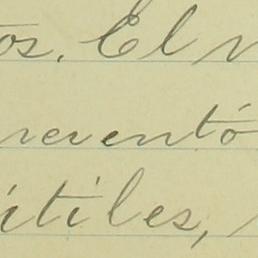 os. El
reventó
útiles,